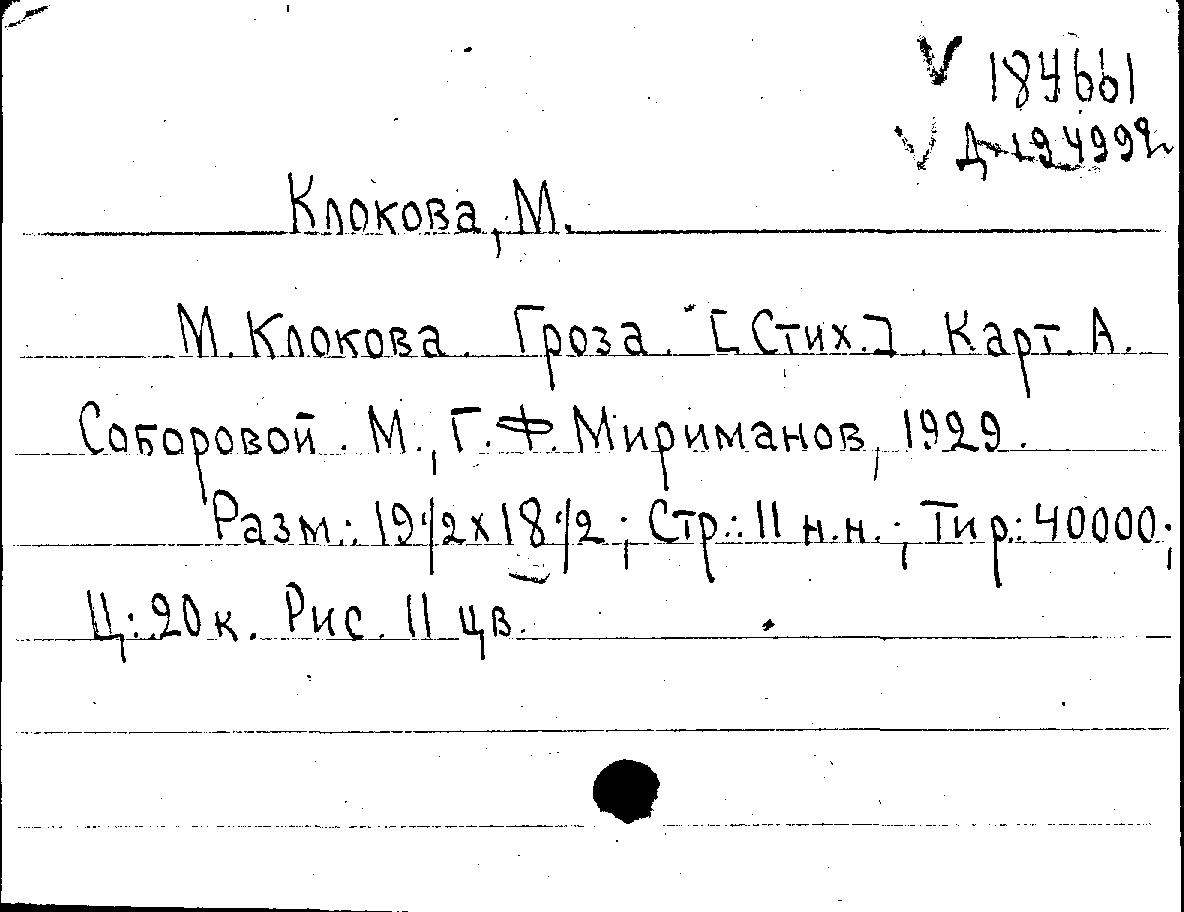 V 184661
V Д-194992
Клокова, М.
М. Клокова. Гроза. [Стих.]. Карт. А.
Соборовой. М., Г. Ф. Мириманов, 1929.
Разм.: 19 1/2 х 18 1/2; Стр.: 11 н.н.; Тир.: 40000;
Ц.: 20 к. Рис. 11 цв.